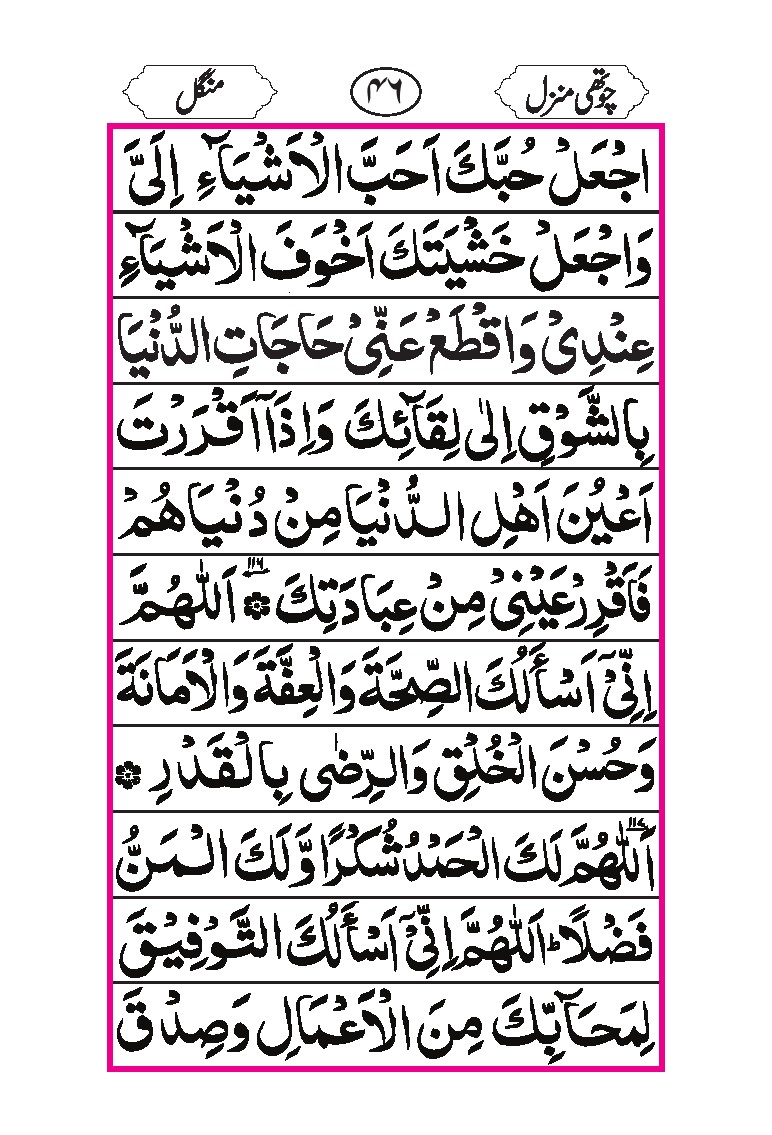 چوتھی منزل
۴۶
منگل
اجْعَلْ حُبَّكَ اَحَبَّ الْاَشْیَآءِ اِلَیَّ
وَاجْعَلْ خَشْیَتَكَ اَخْوَفَ الْاَشْیَآءِ
عِنْدِیْ وَاقْطَعْ عَنِّیْ حَاجَاتِ الدُّنْیَا
بِالشَّوْقِ اِلٰی لِقَآئِكَ وَاِذَآ اَقْرَرْتَ
اَعْیُنَ اَهْلِ الدُّنْیَا مِنْ دُنْیَاهُمْ
فَاَقْرِرْ عَیْنِیْ مِنْ عِبَادَتِكَ ۞ ۱۱۶ اَللّٰهُمَّ
اِنِّیْٓ اَسْأَلُكَ الصِّحَّةَ وَالْعِفَّةَ وَالْاَمَانَةَ
وَحُسْنَ الْخُلْقِ وَالرِّضٰی بِالْقَدْرِ ۞
۱۱۷ اَللّٰهُمَّ لَكَ الْحَمْدُ شُكْرًا وَّلَكَ الْمَنُّ
فَضْلًا ؕ اَللّٰهُمَّ اِنِّیْٓ اَسْأَلُكَ التَّوْفِیْقَ
لِمَحَآبِّكَ مِنَ الْاَعْمَالِ وَصِدْقَ